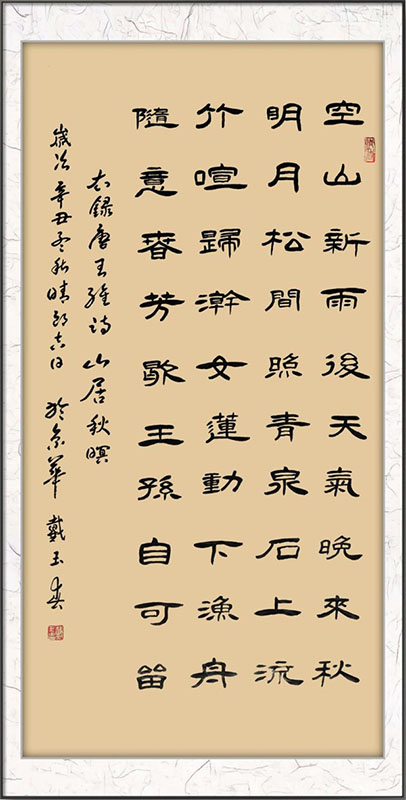 空山新雨後天氣晚來秋
明月松間照青泉石上流
竹喧歸澣女蓮動下漁舟
隨意春芳歇王孫自可留
右錄唐王維詩山居秋暝
歲次辛丑秋晴朗吉日於京華戴玉